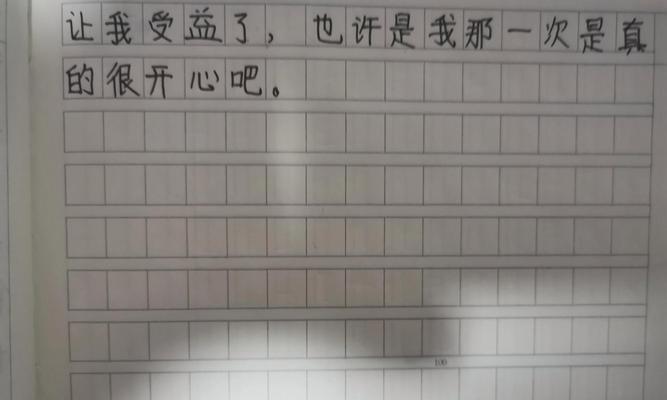 让我受益了，也许是我那一次是真
的很开心吧。
100